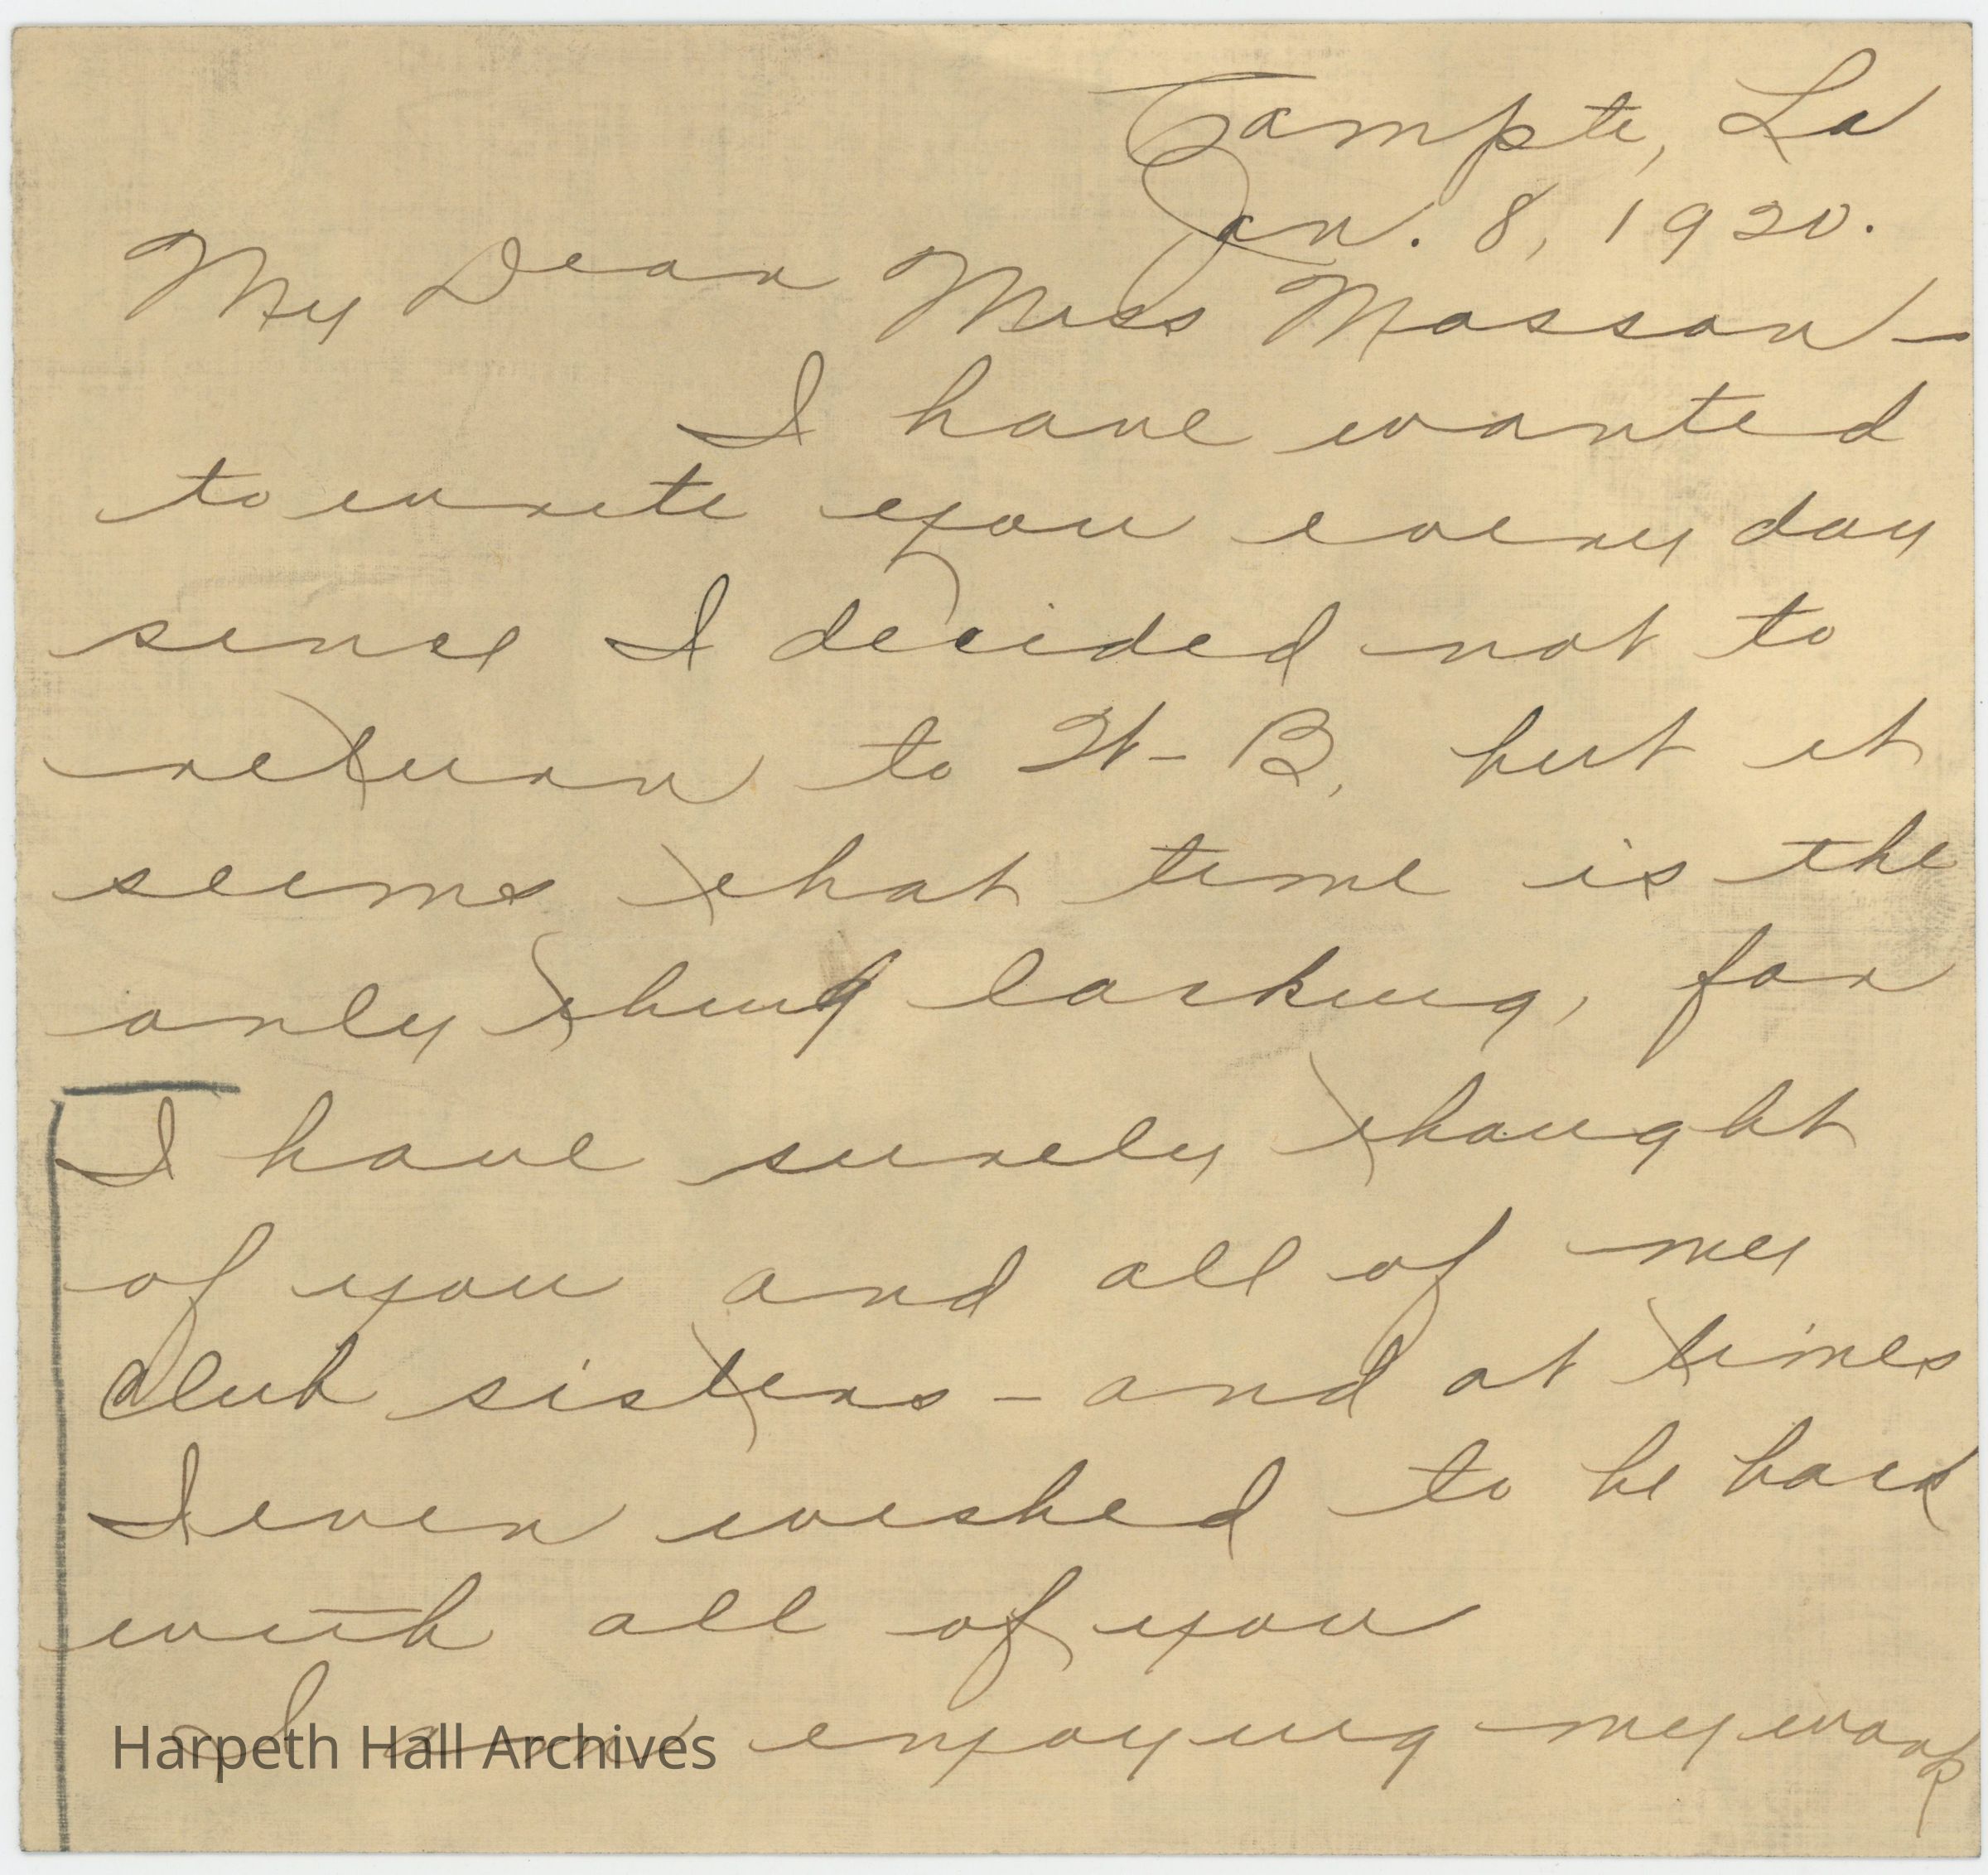 Campte, La
Jan. 8, 1920.
My Dear Miss Masson –
I have wanted
to write you every day
since I decided not to
return to W-B, but it
seems that time is the
only thing lacking, for
I have surely thought
of you and all of my
Club sisters – and at times
I even wished to be back
with all of you
I am enjoying my work
Harpeth Hall Archives